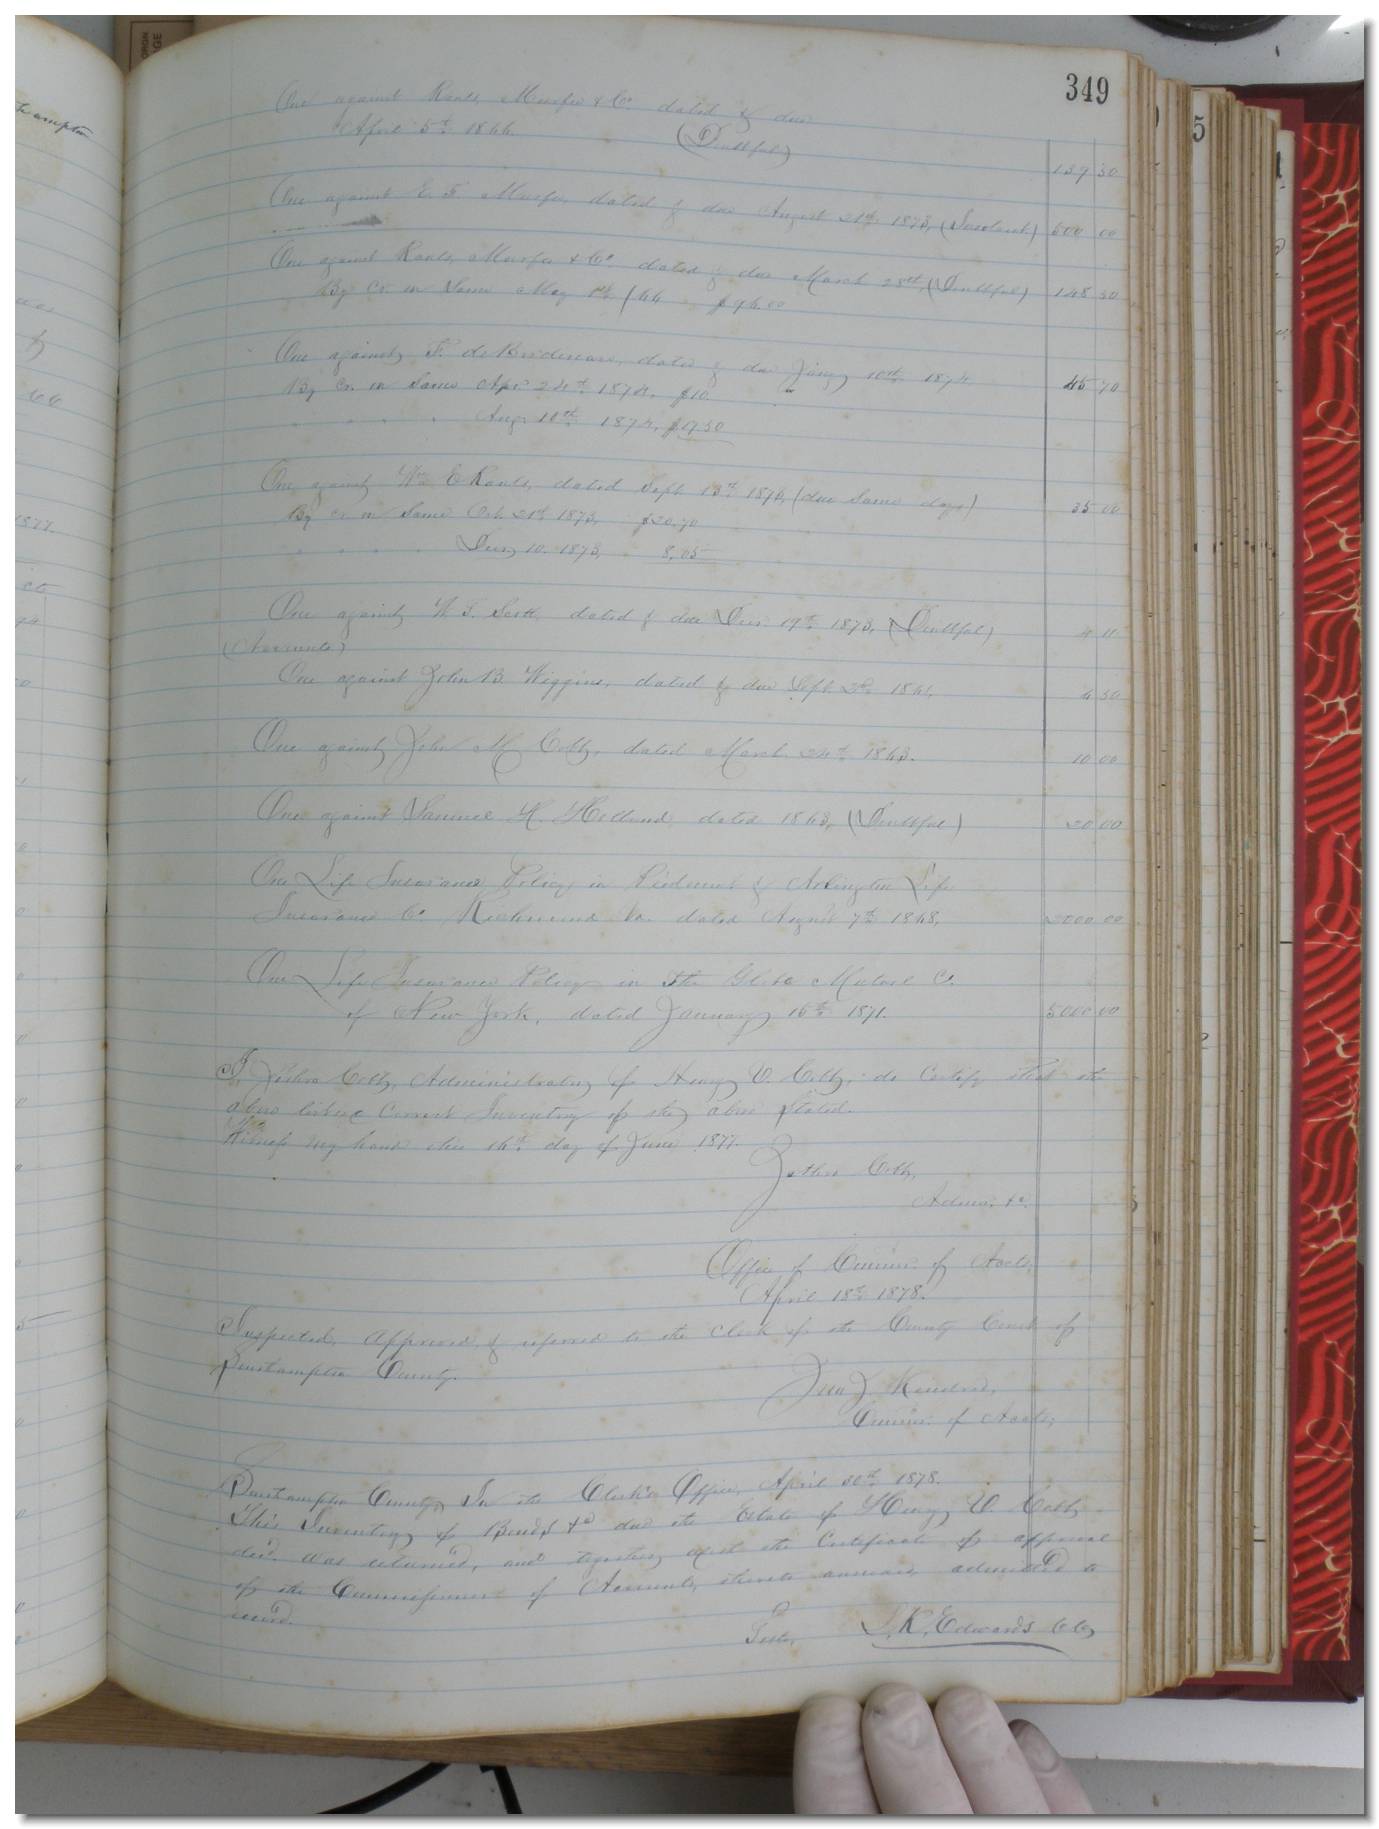 349
One against Rawls, Murfee & Co. dated & due
April 5th 1866. (Doubtful)
139 30
One against E. T. Murfee, dated & due August 21st 1873, (Insolvent) 500 00
One against Rawls, Murfee & Co. dated & due March 28th, (Doubtful) 148 30
By Cr. on Same May 1st /66 $96.00
One against F. dated & due Jany 10th 1874 45 70
By Cr. on Same Apr. 24th 1874, $10.
" " " " Aug. 10th 1874, $9.50
One against Wm. E. Rawls, dated Sept. 13th 1873, (due same day) 35 00
By cr. on Same Oct. 21st 1873, $20.70
" " " " 10. 1873, 8.05
One against W. T. Scott, dated & due 19th 1873, (Doubtful) 4 11
(Accounts)
One against John B. Wiggins, dated & due Sept. 1861, 4 50
One against John M Cobb, dated March 24th 1863. 10 00
One against Samuel H. Holland, dated 1863, (Doubtful) 20 00
One Life Insurance Policy, in Piedmont & Arlington Life
Insurance Co. Richmond Va. dated August 7th 1868, 2000 00
One Life Insurance Policy in The Globe Mutual Co.
of New York, dated January 16th 1871. 5000 00
I, Cobb, Administrator of Henry Cobb, do Certify that the
above is true & Correct Inventory of the above Stated.
Witness my hand this 16th day of June 1877.
Cobb,
Admr. &c.
Office of Commr. of Accts,
April 18th 1878.
Inspected, Approved & referred to the Clerk of the County Court of
Southampton County.
Kindred,
Commr. of Accts,
Southampton County, In the Clerk's Office, April 30th 1878.
This Inventory of Bonds &c due the Estate of Henry Cobb
decd. was returned, and together with the Certificate of approval
of the Commissioner of Accounts, thereto annexed, admitted to
record.
Teste, L. R. Edwards